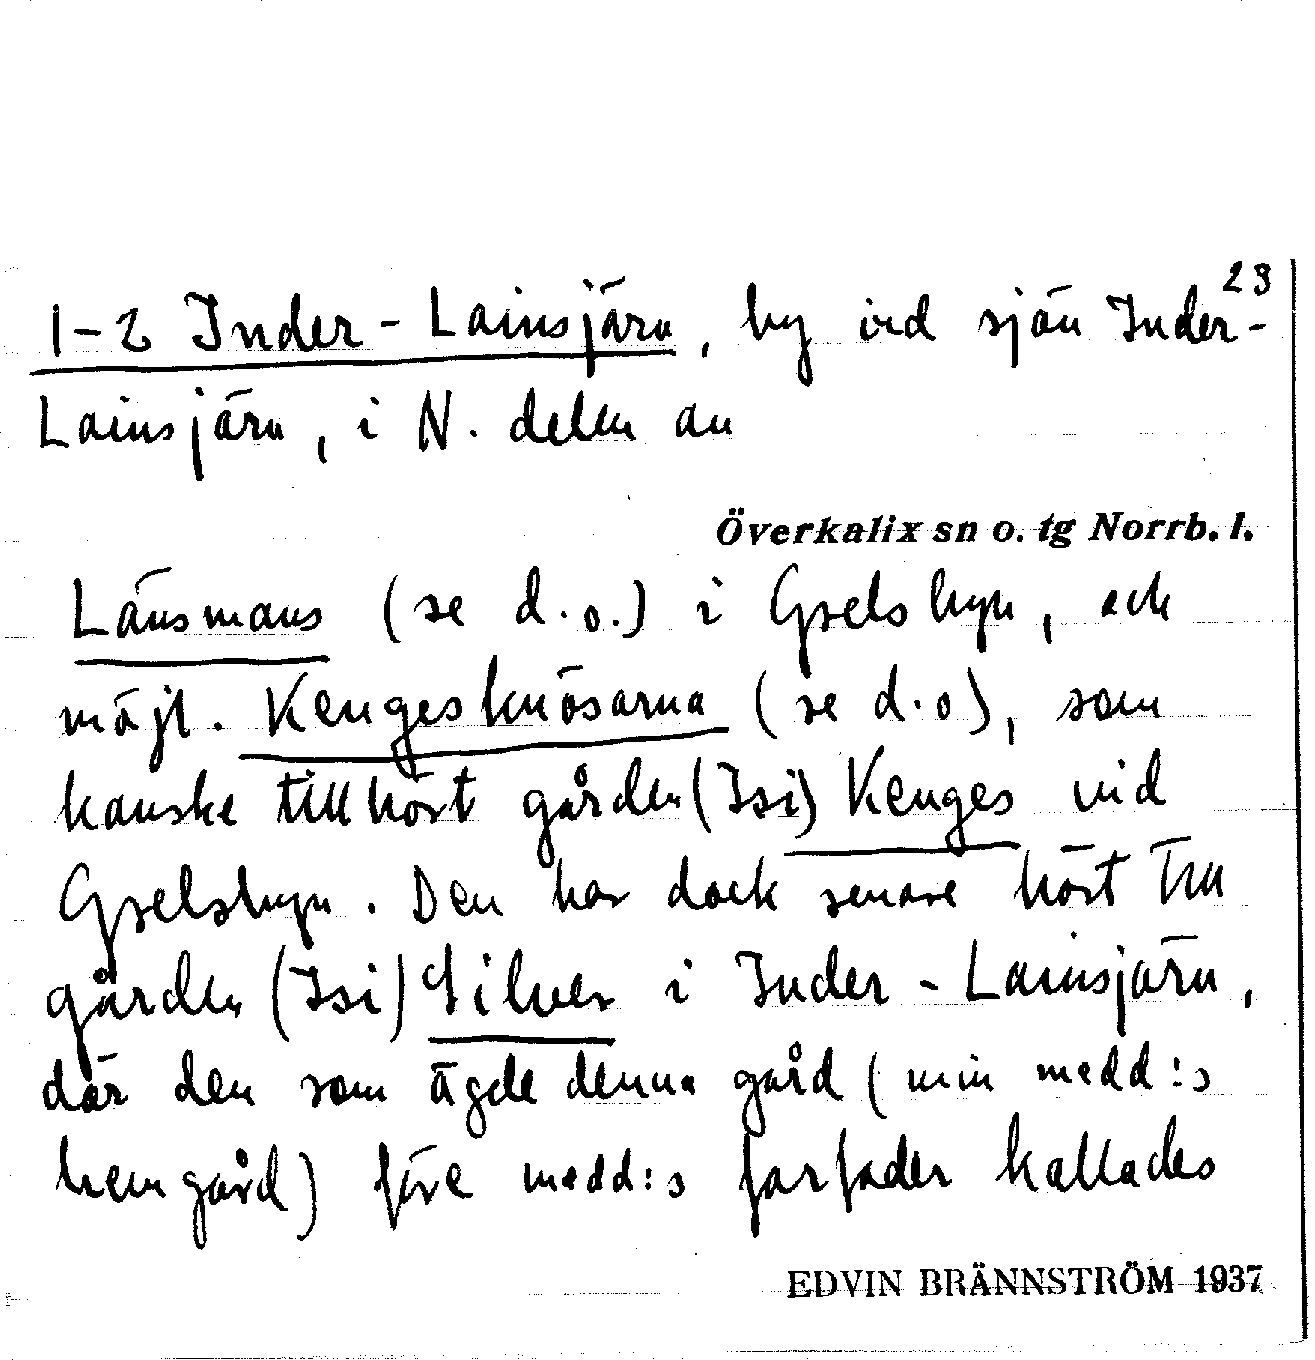 23
1-2 Inder-Lainsjärv, by vid sjön Inder-
Lainsjärv, i N. delen av
Överkalix sn o. tg Norrb. l.
Länsmans (se d.o.) i Gyselsbyn, och
möjl. Kengesknösarna (se d.o), som
kanske tillhört gården (Isi) Kenges vid
Gyselsbyn. Den har dock senare hört till
gården (Isi) Silver i Inder-Lainsjärv,
där den som ägde denna gård (min medd:s
hemgård) före medd:s farfader kallades
EDVIN BRÄNNSTRÖM 1937